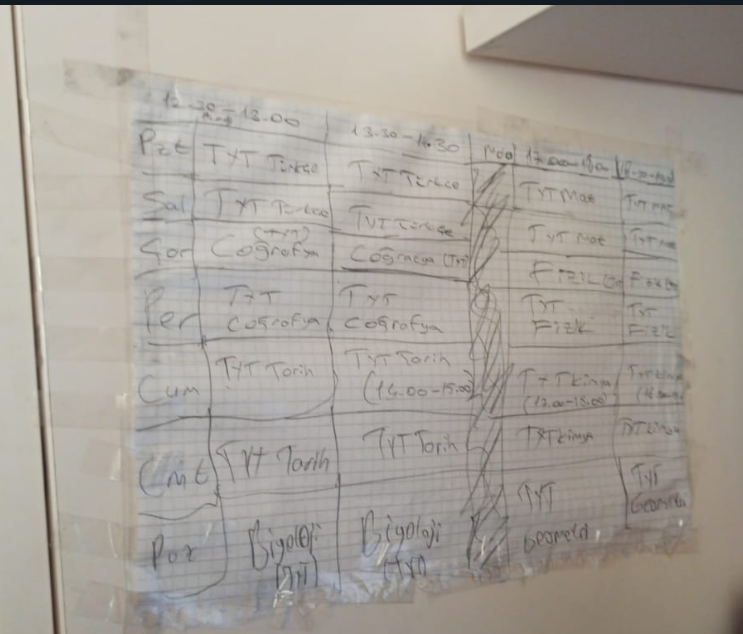 12.30-13.00
13.30-14.30
17.00-18.00
Pzt TYT Türkçe TYT Türkçe TYT Mat TYT Mat
Sal TYT Türkçe TYT Türkçe TYT Mat TYT Mat
(TYT)
Coğrafya Coğrafya (TYT) Fizik
Per TYT Coğrafya TYT Coğrafya TYT Fizk TYT Fizk
Cum TYT Tarih TYT Tarih TYT kimya
(14.00-15.00)
Cmt TYT Tarih TYT Tarih TYT kimya TYT kimya
Paz Biyoloji Biyoloji TYT Geometri TYT Geometri
(TYT) (TYT)